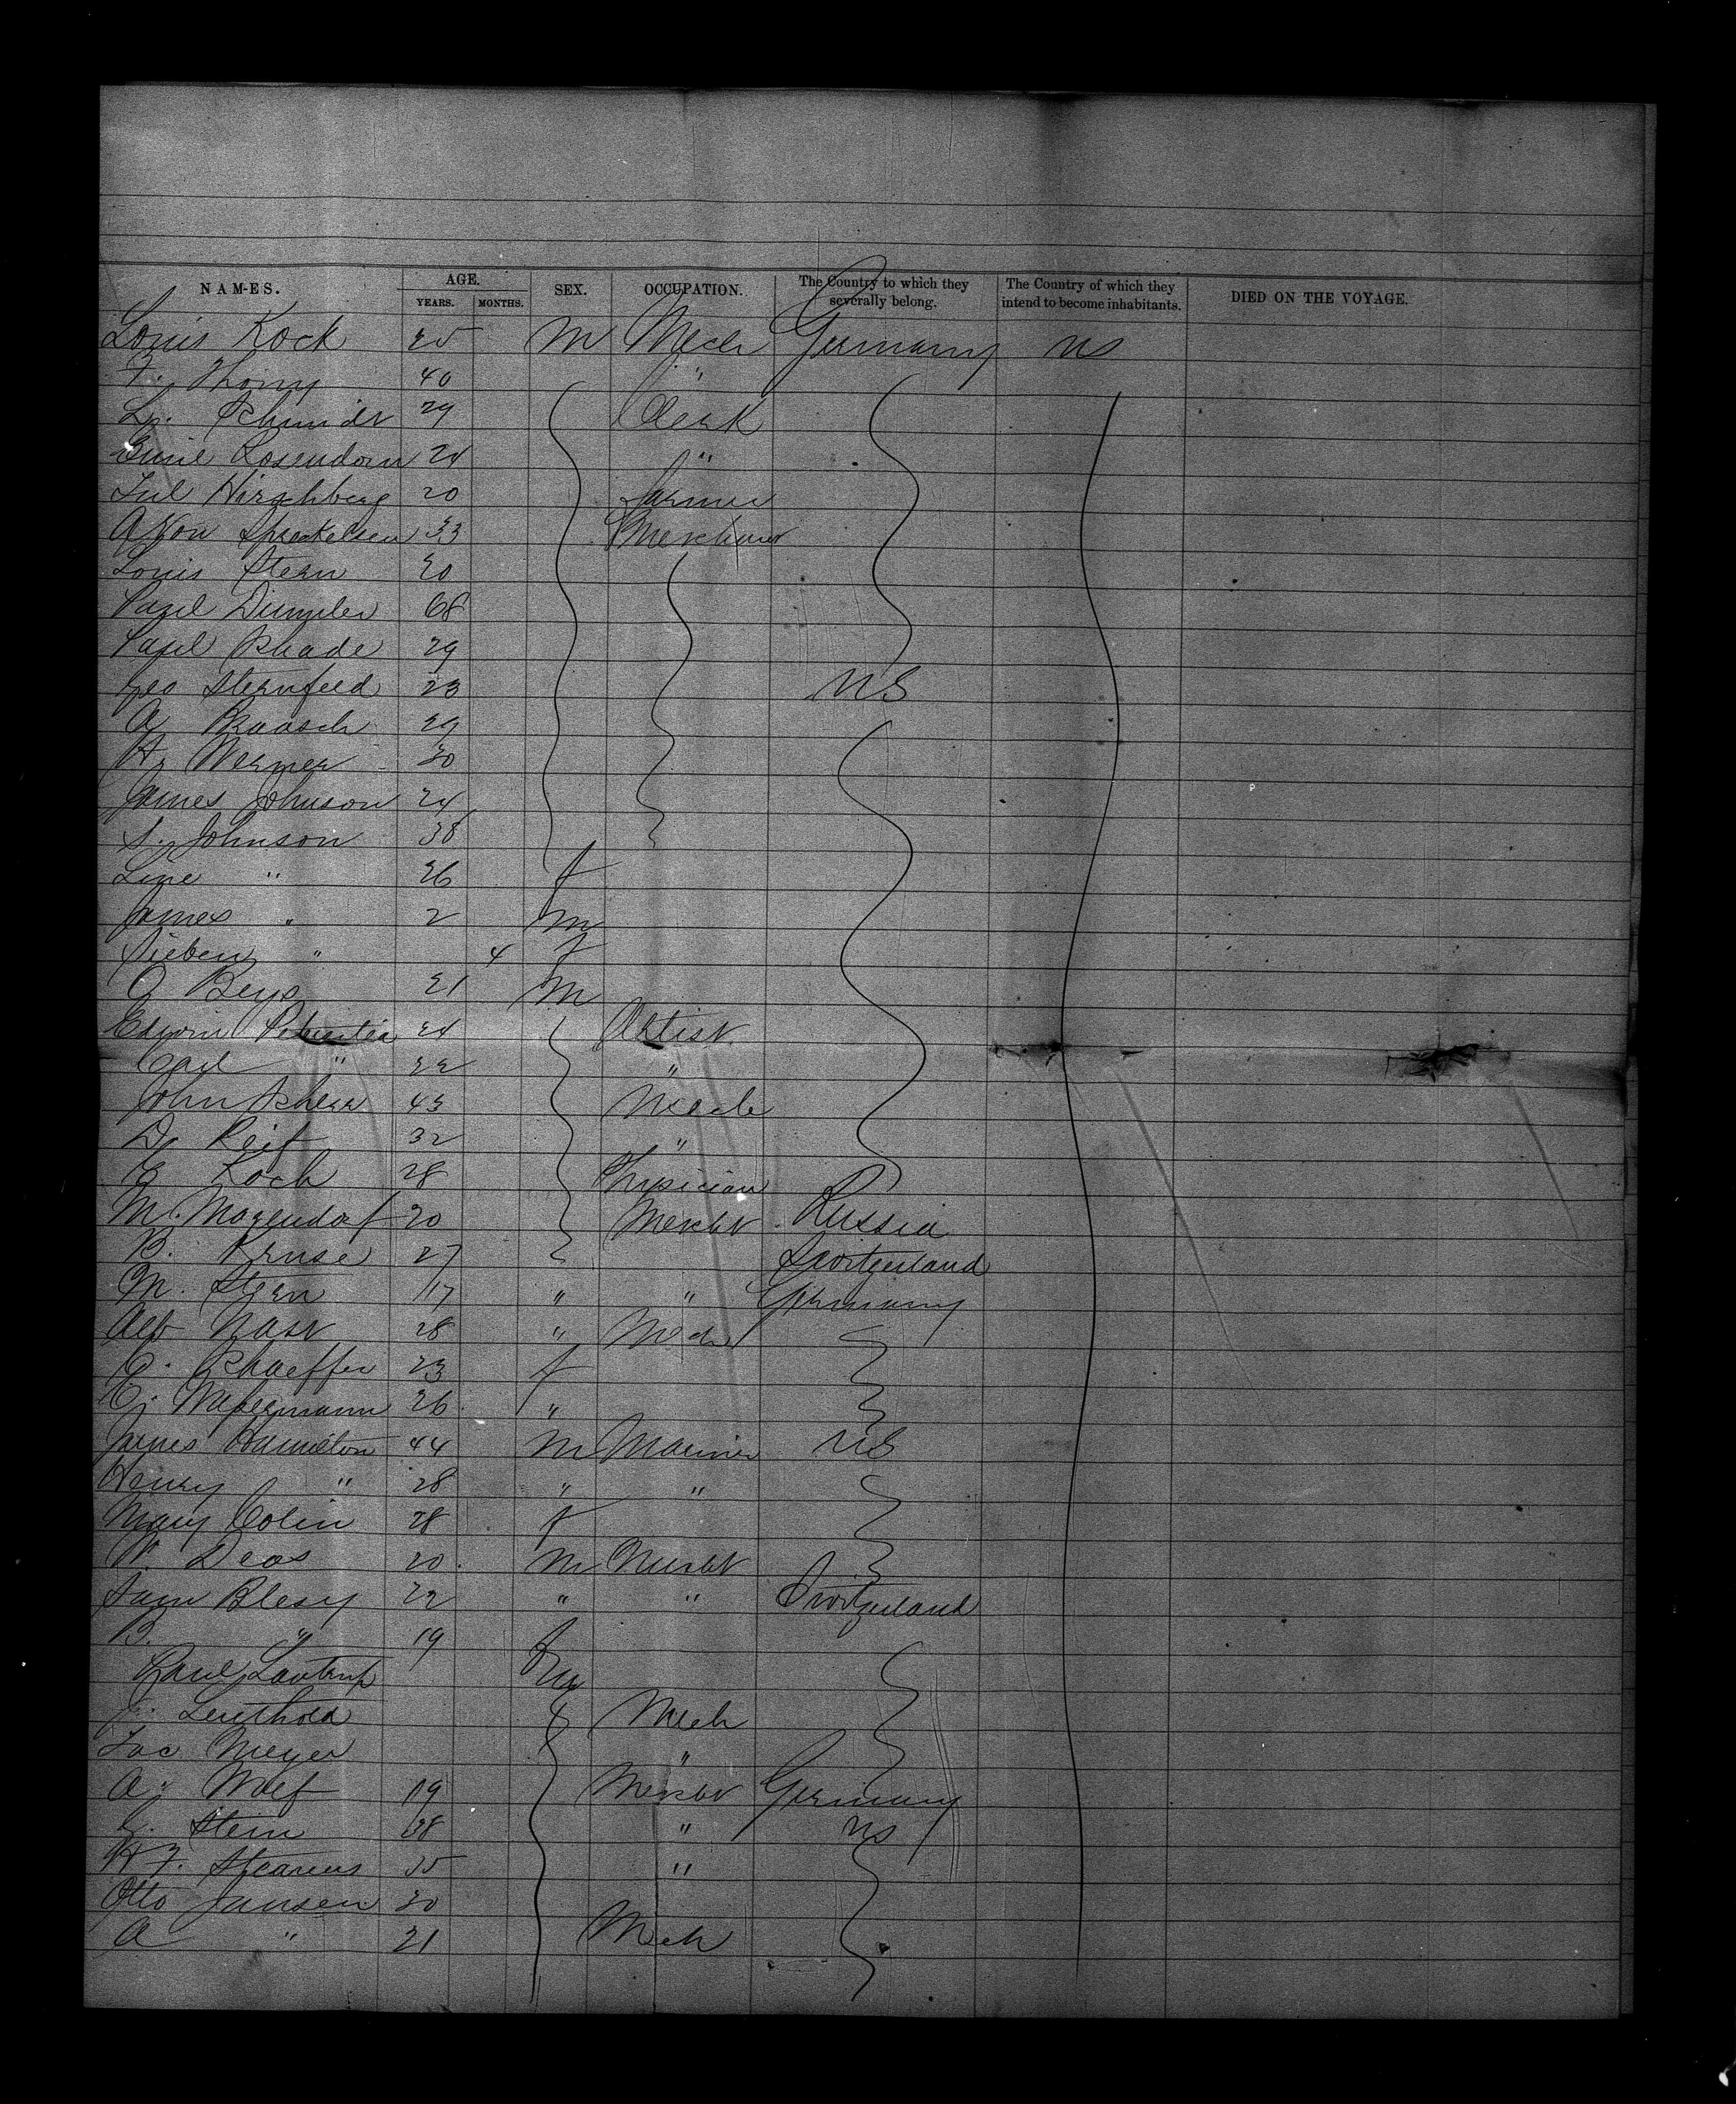 NAMES. AGE. YEARS. MONTHS. SEX. OCCUPATION. The Country to which they severally belong. The Country of which they intend to become inhabitants. DIED ON THE VOYAGE.
Louis Kock 25 M Mech Germany US
F. Thony 40 "
Schmidt 29 Clerk
Rosendorn 24 "
Jul Hirschberg 20 Farmer
A Von Spreckelsen 33 Merchant
Louis Stern 20
Paul Dumler 68
Paul Rhade 29
Geo Sternfeld 23 US
A. Braasch 29
Hr Werner 30
James Johnson 24
S. Johnson 38
Line " 26 f
James " 2 M
" 4 f
21 M
Edwin 24 Artist
Carl " 22 "
John Scherr 43 Mech
D. Reif 32 "
Koch 28 Physician
M. 20 Mercht Russia
B. Kruse 27 Switzerland
M. Stern 17 " " Germany
Alb Nast 28 " Mech
C. Schaeffer 23 f
C. 26 "
James Hamilton 44 M Mariner US
Henry " 28 " "
Mary Colin 28 f
Deas 20 M Mercht
Sam Blesy 22 " " Switzerland
B. " 19 f
Paul Lautrup M
J. Leuthold Mech
Jac Meyer "
A. Wolf 19 Mercht Germany
Stein 38 " US
H F. Stearns 35 "
Otto Jansen 30
A " 21 Mech